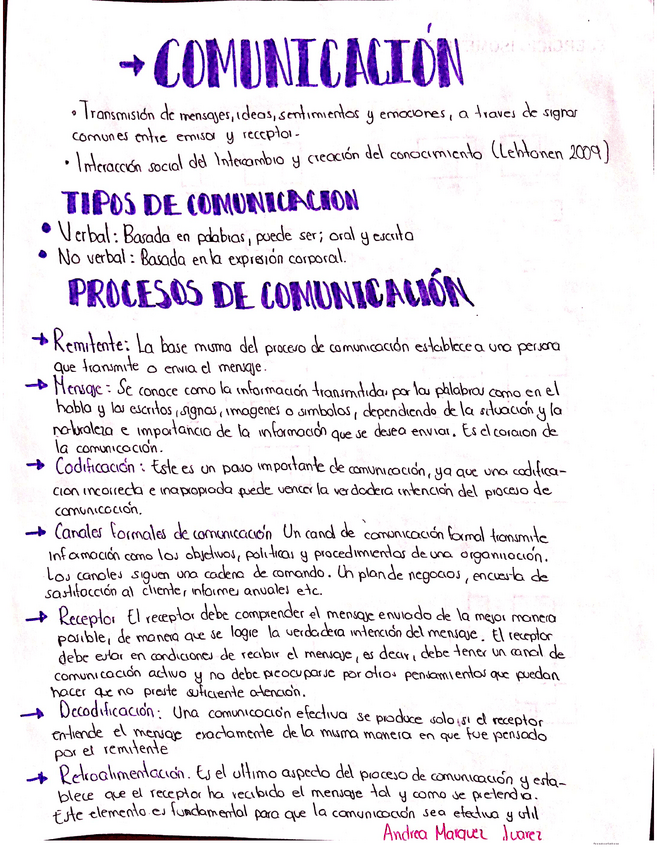 → COMUNICACIÓN
• Transmisión de mensajes, ideas, sentimientos y emociones, a traves de signos
comunes entre emisor y receptor.
• Interacción social del Intercambio y creación del conocimiento (Lehtonen 2009)
TIPOS DE COMUNICACION
• Verbal: Basada en palabras, puede ser; oral y escrita
• No verbal: Basada en la expresión corporal.
PROCESOS DE COMUNICACIÓN
→ Remitente: La base misma del proceso de comunicación establece a una persona
que transmite o envia el mensaje.
→ Mensaje: Se conoce como la información transmitida por las phlabras como en el
habla y las escritos, signos, imagenes o simbolos, dependiendo de la situación y la
naturaleza e importancia de la información que se desea enviar. Es el corazon de
la comunicación.
→ Codificación: Este es un paso importante de comunicación, ya que una codifica-
cion incorrecta e inapropiada puede vencer la verdadera intención del proceso de
comunicación.
→ Canales formales de comunicación Un canal de comunicación formal transmite
información como los objetivos, politicas y procedimientos de una organización.
Los canales siguen una cadena de comando. Un plan de negocios, encuesta de
sastifacción al cliente, informes anuales etc.
→ Receptor El receptor debe comprender el mensaje enviado de la mejor manera
posible, de manera que se logre la verdadera intención del mensaje. El receptor
debe estar en condiciones de recibir el mensaje, es decir, debe tener un canal de
comunicación activo y no debe preocuparse por otros pensamientos que puedan
hacer que no preste suficiente atención.
→ Decodificación: Una comunicación efectiva se produce solo, si el receptor
entiende el mensaje exactamente de la misma manera en que fue pensado
por el remitente
→ Retroalimentación. Es el ultimo aspecto del proceso de comunicación y esta-
blece que el receptor ha recibido el mensaje tal y como se pretendia.
Este elemento es fundamental para que la comunicación sea efectiva y util
Andrea Marquez Juarez